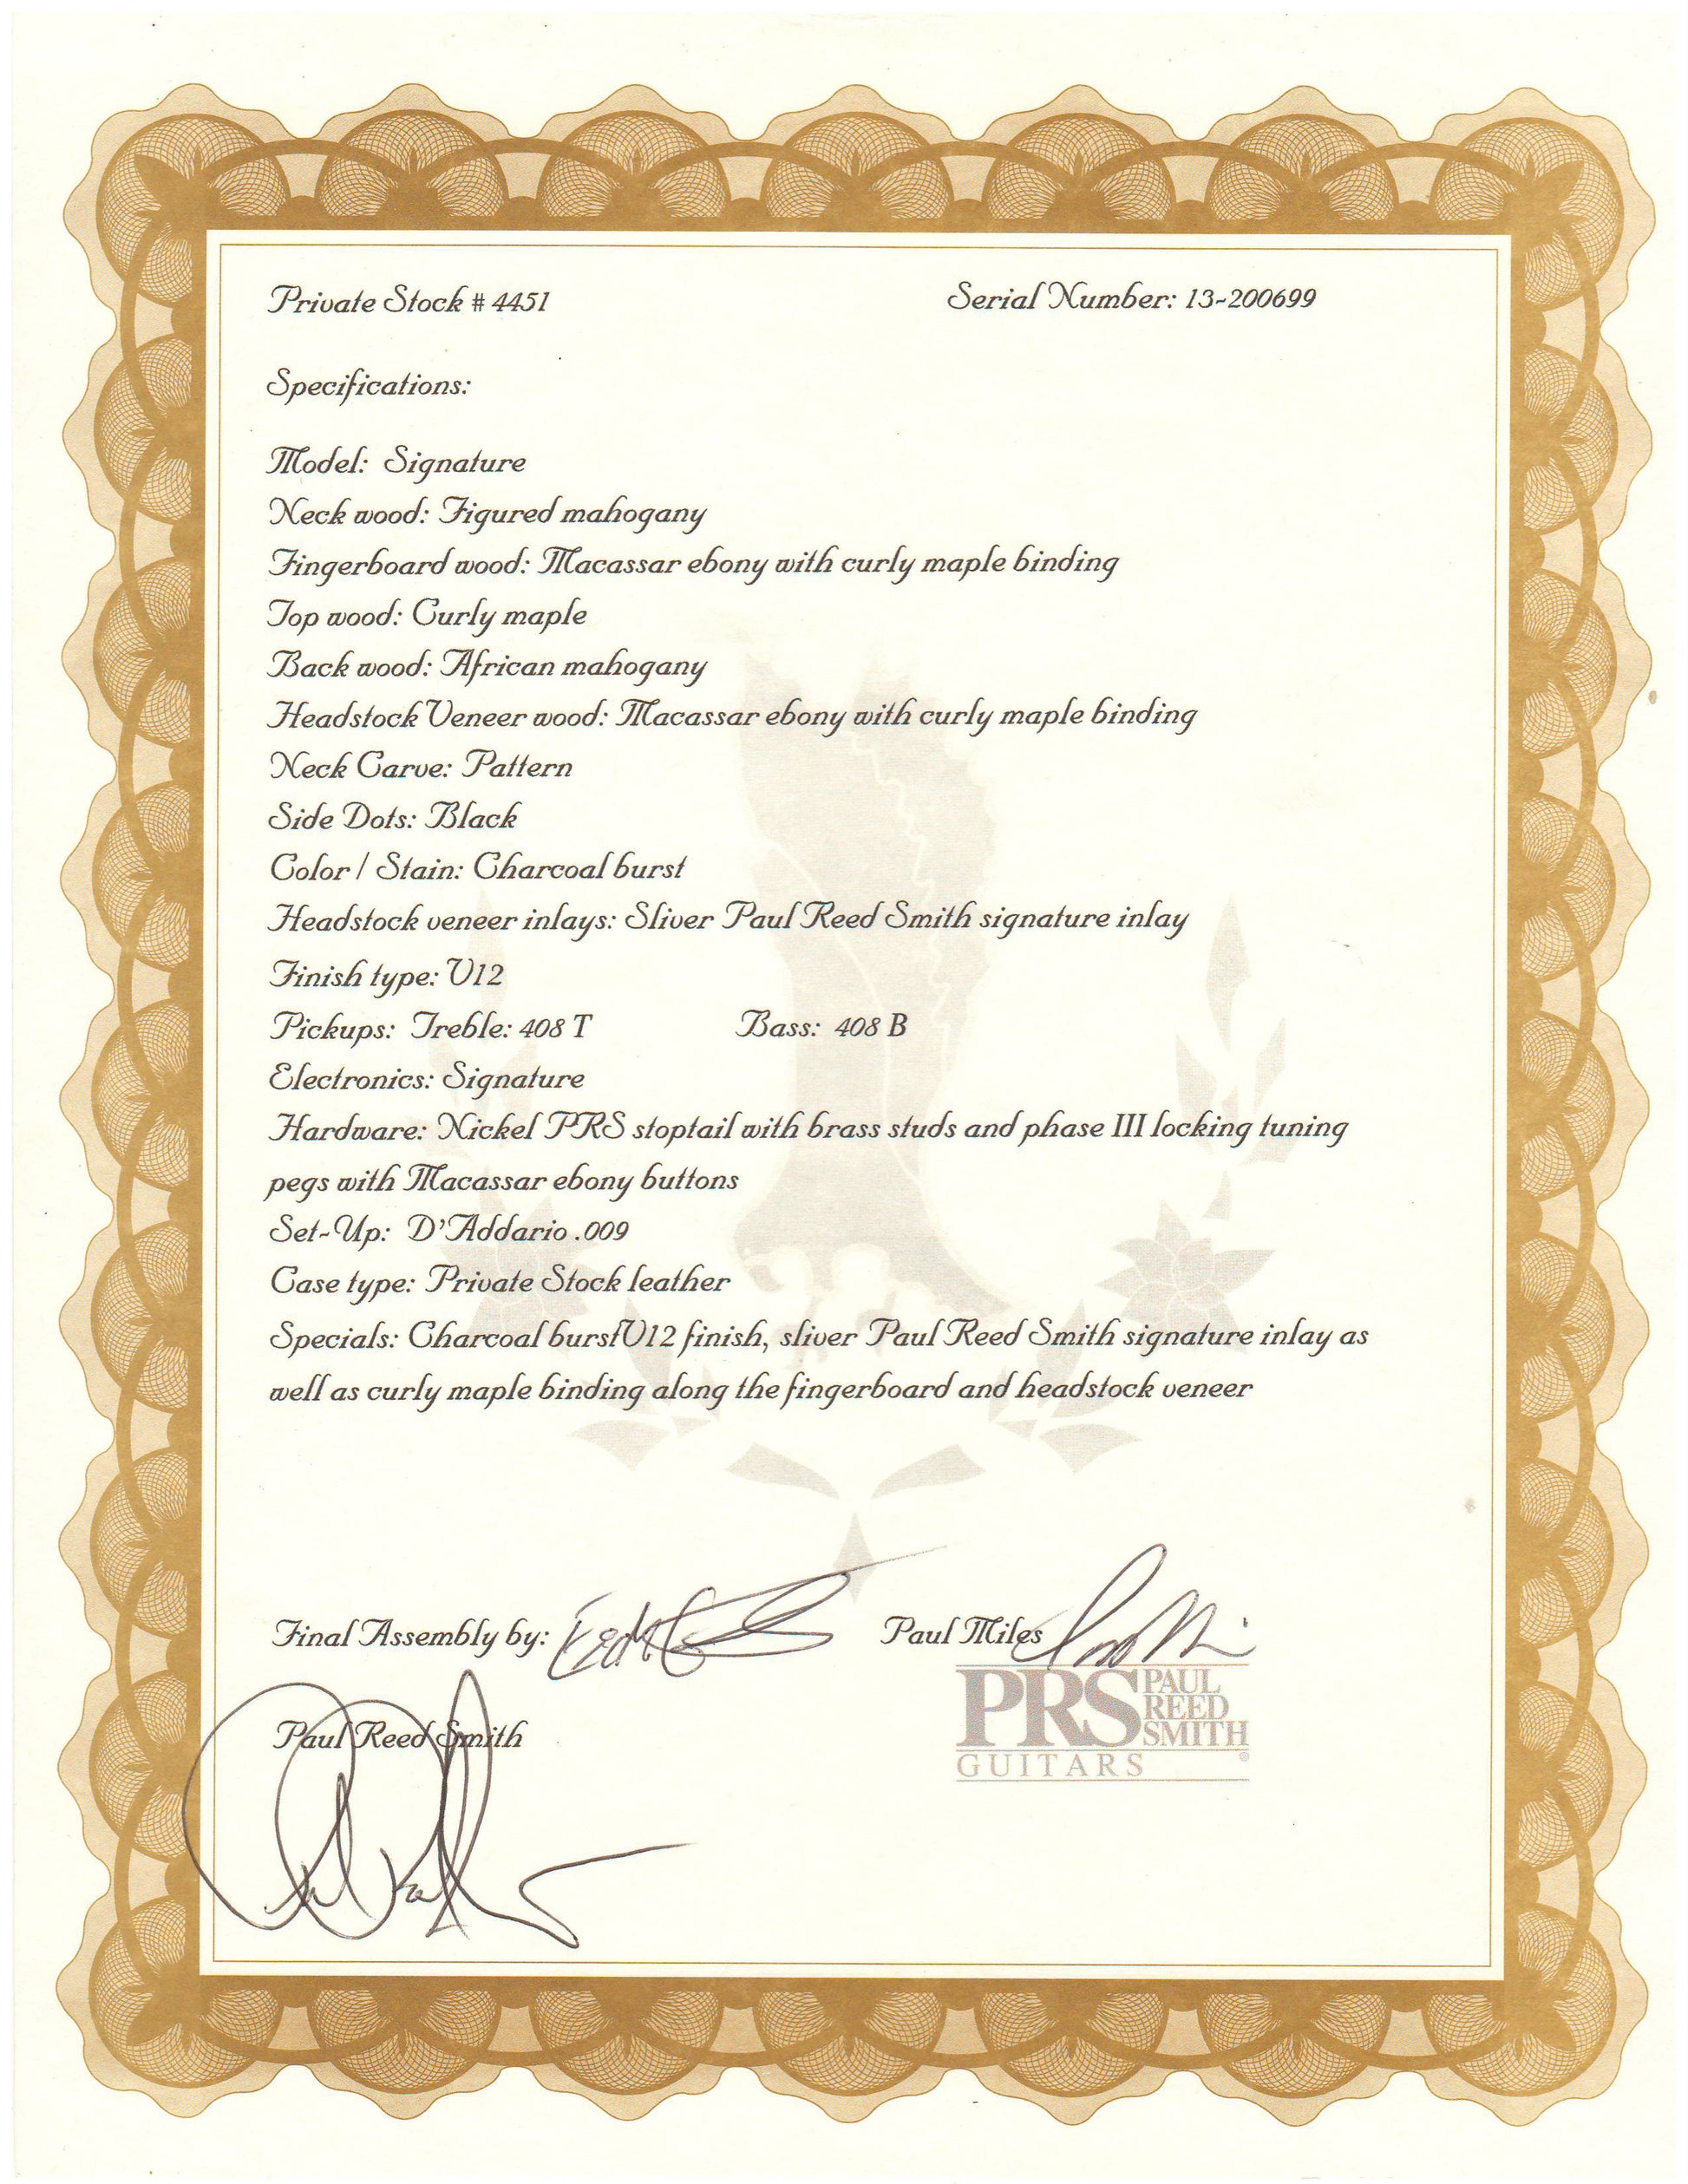 Private Stock # 4451
Serial Number: 13-200699
Specifications:
Model: Signature
Neck wood: Figured mahogany
Fingerboard wood: Macassar ebony with curly maple binding
Top wood: Curly maple
Back wood: African mahogany
Headstock Veneer wood: Macassar ebony with curly maple binding
Neck Carve: Pattern
Side Dots: Black
Color / Stain: Charcoal burst
Headstock veneer inlays: Sliver Paul Reed Smith signature inlay
Finish type: V12
Pickups: Treble: 408 T Bass: 408 B
Electronics: Signature
Hardware: Nickel PRS stoptail with brass studs and phase III locking tuning
pegs with Macassar ebony buttons
Set-Up: D'Addario .009
Case type: Private Stock leather
Specials: Charcoal burst V12 finish, sliver Paul Reed Smith signature inlay as
well as curly maple binding along the fingerboard and headstock veneer
Final Assembly by:
Paul Miles
Paul Reed Smith
PRS PAUL
REED
SMITH
GUITARS